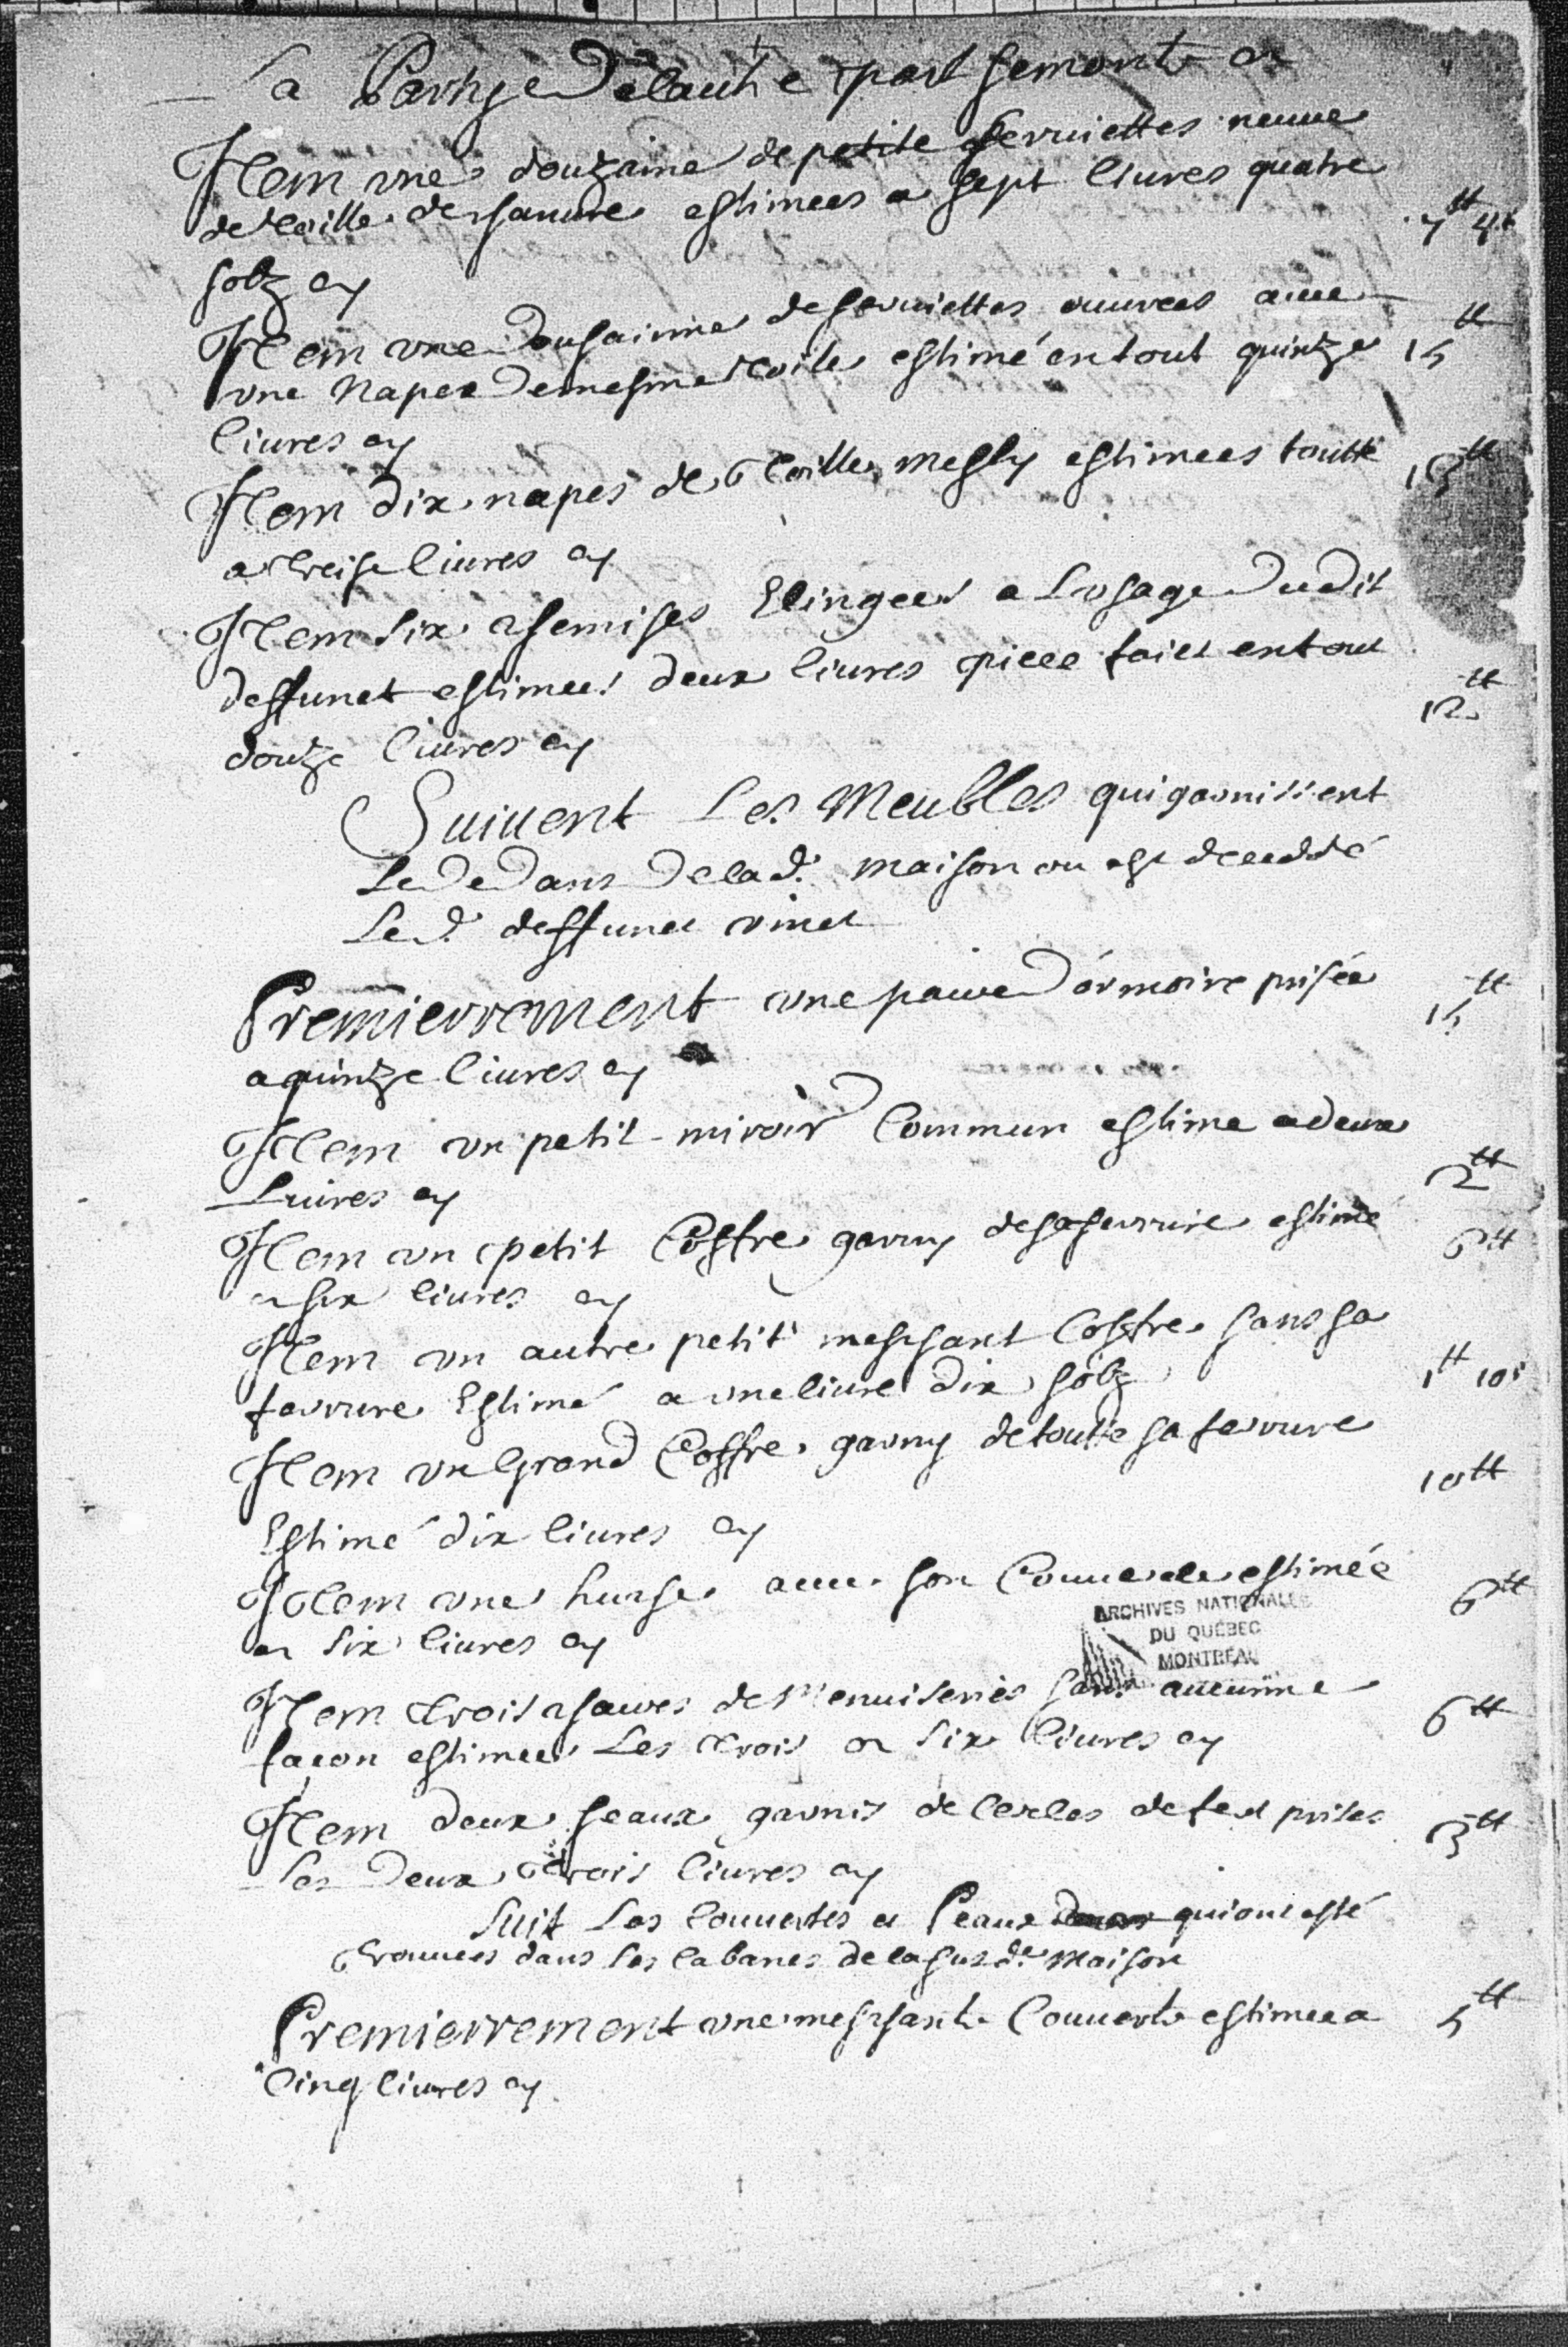 La Partye De lautre part se monte a
Item une douzaine de petite serviettes neuve
de toille de chanvre estimees a sept livres quatre 7tt 4s
solz cy
Item une dousainne de serviettes ouvrees avec
une Nape de mesme toile estimé en tout quintze 15tt
livres cy
Item dix napes de toille mesly estimees toutte 13tt
a treise livres cy
Item six chemises Elingees a Lusage du dit
deffunct estimees deux livres piece faict en tout 12tt
doutze livres cy
Suivent Les Meubles qui garnissent
Le Dedans De lad. maison ou est deceddé
Le d. deffunct vinet
Premierrement une paire D'ormoire prisée 15tt
a quintze livres cy
Item un petit miroir Commun estime a deux
Livres cy 2tt
Item un petit Coffre garny de sa ferrure estimé 6tt
a six livres cy
Item un autre petit meschant Coffre sans sa
ferrure Estimé a une livre dix solz 1tt 10s
Item un Grand Coffre garny de toutte sa ferrure
Estimé dix livres cy 10tt
Item une husche avec son Couvercle estimée 6tt
a six livres cy
ARCHIVES NATIONALES
DU QUÉBEC
MONTRÉAL
Item trois chaires de Menuiseries sans aucunne
façon estimees Les trois a six livres cy 6tt
Item deux seaux garnis de Cercles de fert prises
Les Deux trois livres cy 3tt
Suit Les Couvertes et Peaux qui ont esté
trouvees dans Les Cabanes de la susde. Maison
Premierrement une meschante Couverte estimee a 5tt
Cinq livres cy